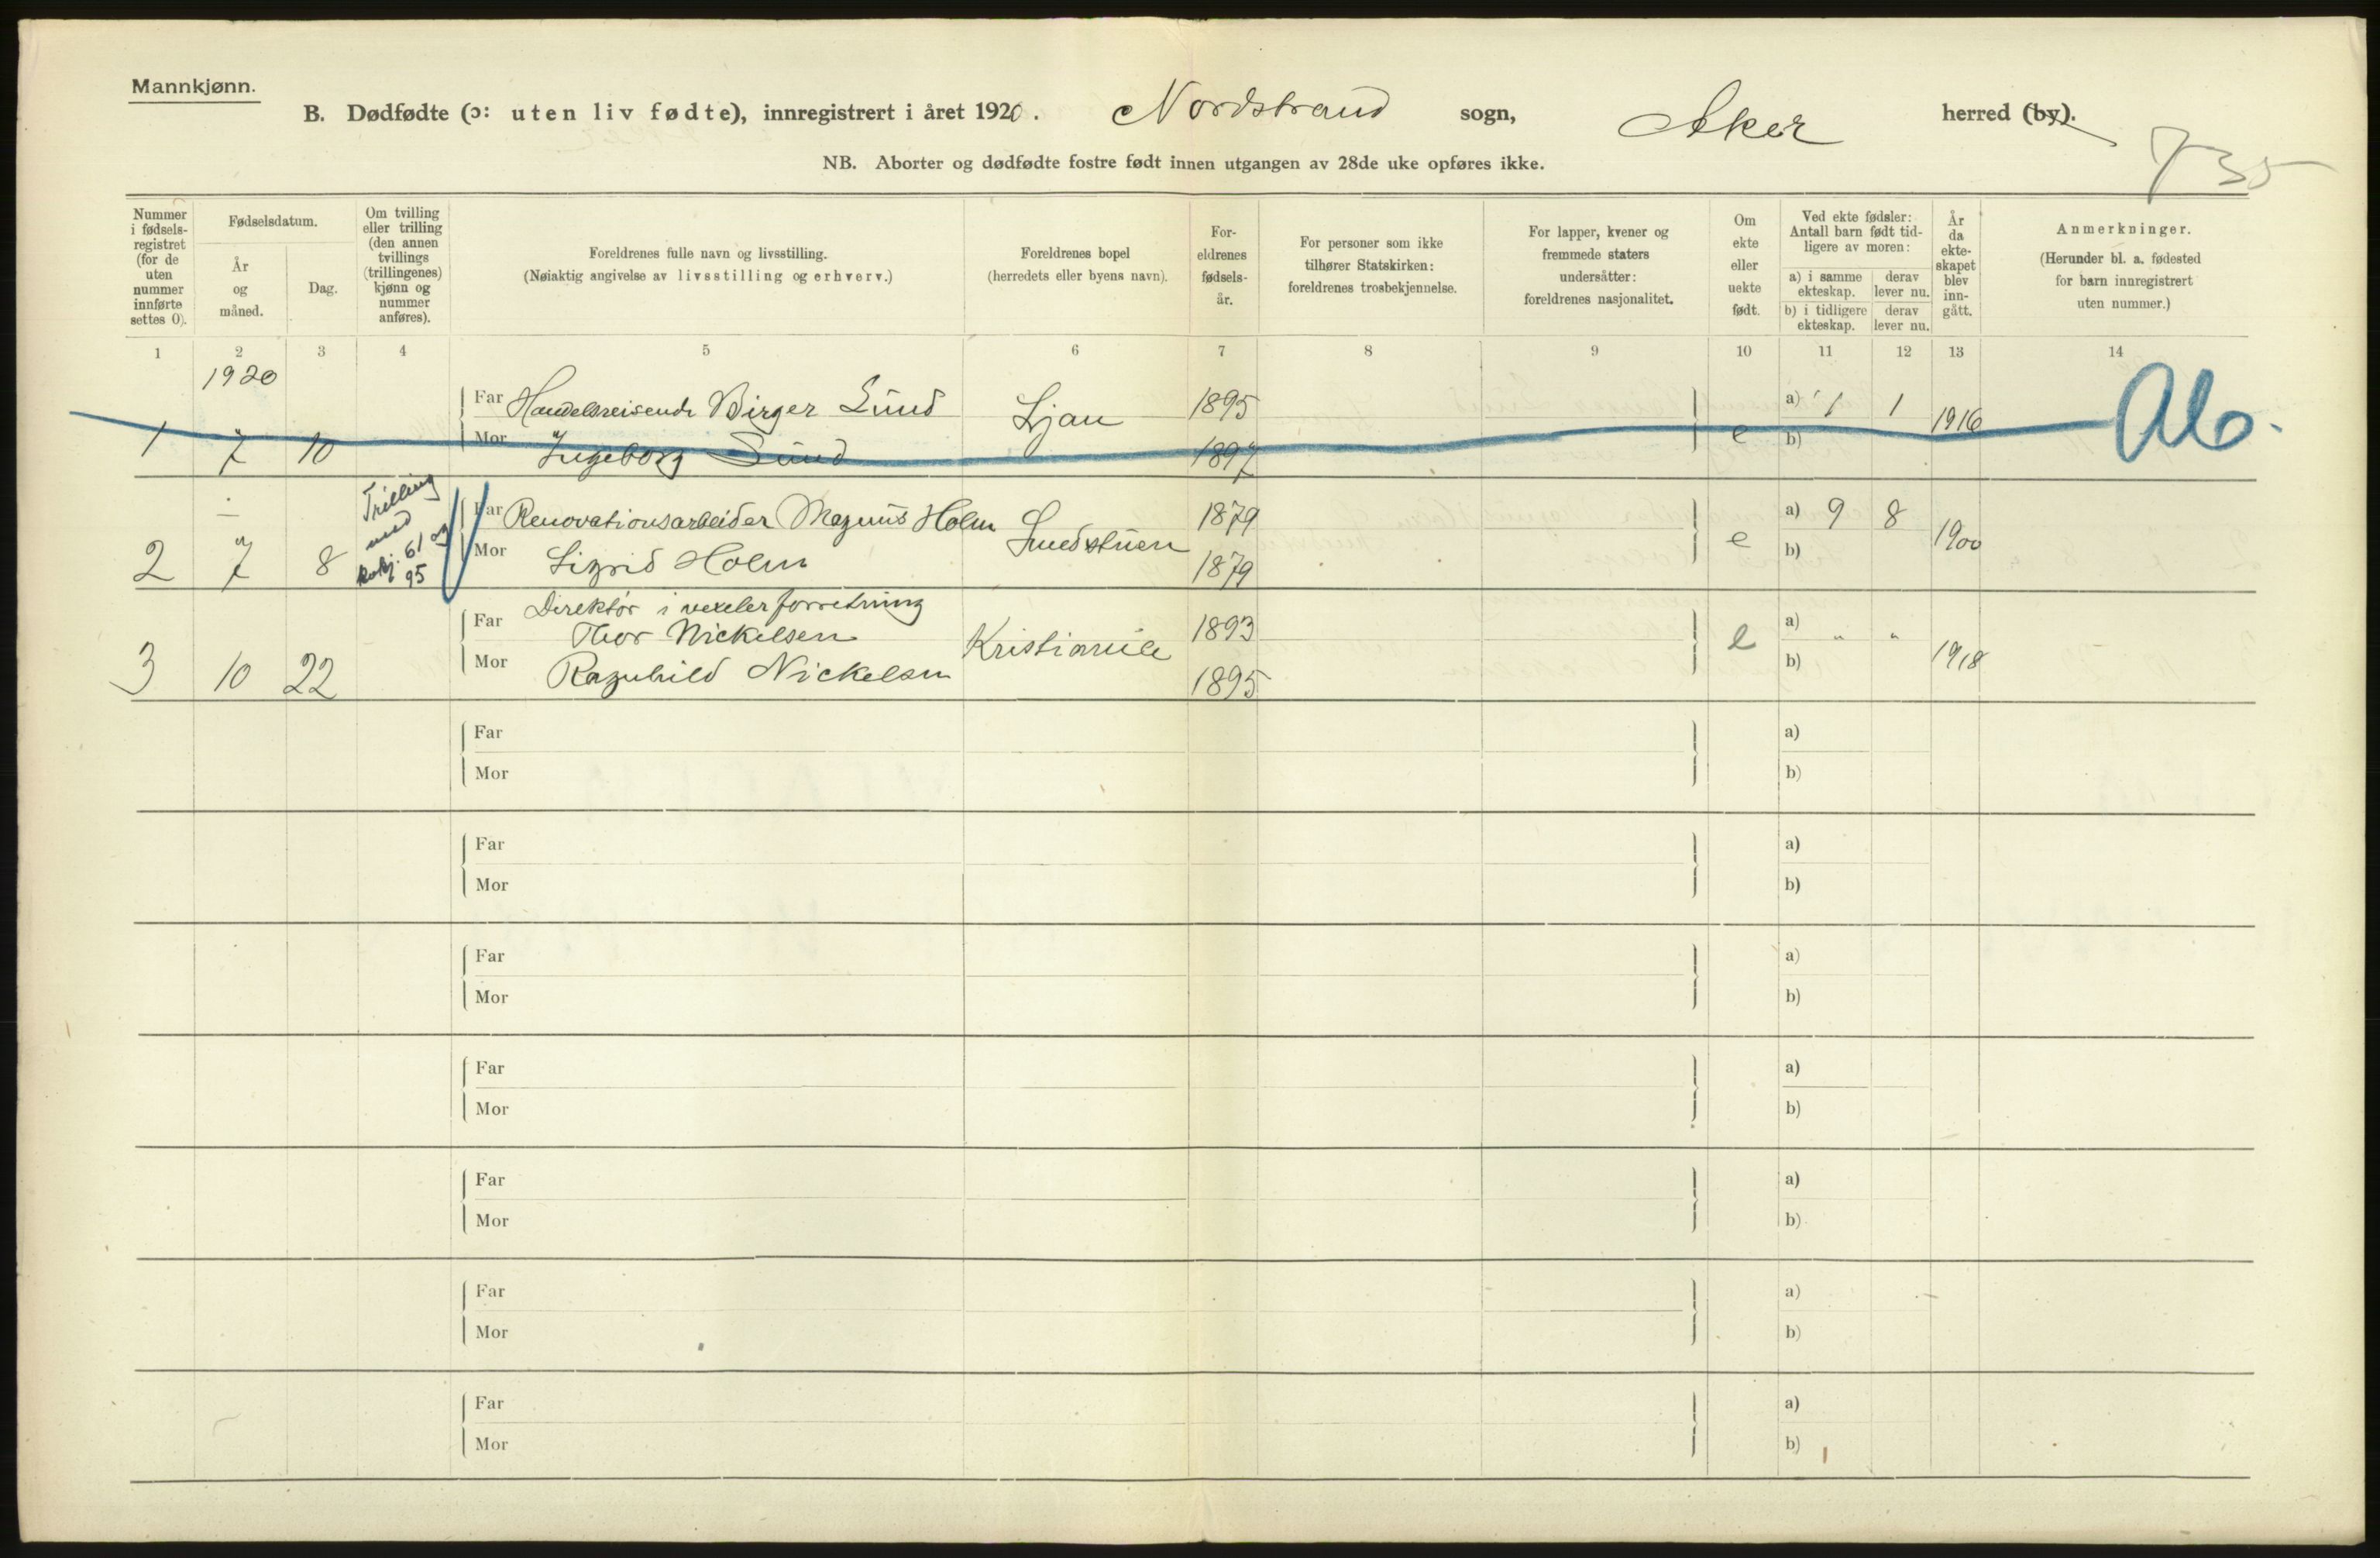 Mannkjønn.
B. Dødfødte (ɔ: uten liv fødte), innregistrert i året 1920. Nordstrand sogn, Aker herred (by).
735
NB. Aborter og dødfødte fostre født innen utgangen av 28de uke opføres ikke.
Nummer i fødsels-registret (for de uten nummer innførte settes 0).
Fødselsdatum.
År og måned.
Dag.
Om tvilling eller trilling (den annen tvillings (trillingenes) kjønn og nummer anføres).
Foreldrenes fulle navn og livsstilling.
(Nøiaktig angivelse av livsstilling og erhverv.)
Foreldrenes bopel
(herredets eller byens navn).
For-eldrenes fødsels-år.
For personer som ikke tilhører Statskirken: foreldrenes trosbekjennelse.
For lapper, kvener og fremmede staters undersåtter: foreldrenes nasjonalitet.
Om ekte eller uekte født.
Ved ekte fødsler: Antall barn født tid-ligere av moren:
a) i samme ekteskap.
derav lever nu.
b) i tidligere ekteskap.
derav lever nu.
År da ekte-skapet blev inn-gått.
Anmerkninger.
(Herunder bl. a. fødested for barn innregistrert uten nummer.)
1 2 3 4 5 6 7 8 9 10 11 12 13 14
1920
Far Handelsreisende Birger Lund Ljan 1895 a) 1 1 1916 Ab.
1 7 10 Mor Ingeborg Lund 1897 e b)
Trilling
med
61 og
95
Far Renovationsarbeider Magnus Holm 1879 a) 9 8 1900
2 7 8 Mor Sigrid Holm 1879 e b)
Direktør i vexelerforretning
Far Thor Nickelsen Kristiania 1893 e a) " " 1918
3 10 22 Mor Ragnhild Nickelsen 1895 b)
Far a)
Mor b)
Far a)
Mor b)
Far a)
Mor b)
Far a)
Mor b)
Far a)
Mor b)
Far a)
Mor b)
Far a)
Mor b)